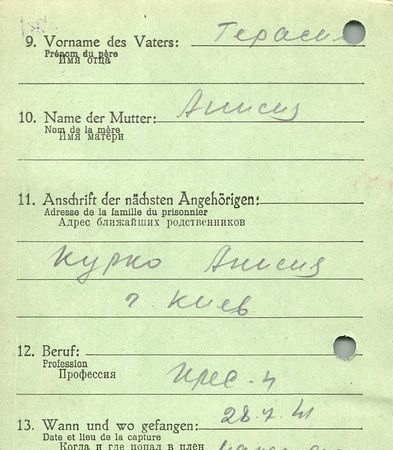 9. Vorname des Vaters: Тераси
Prénom du père
Имя отца
10. Name der Mutter: Анисия
Nom de la mère
Имя матери
11. Anschrift der nächsten Angehörigen:
Adresse de la famille du prisonnier
Адрес ближайших родственников
Курко Анисия
г. Киев
12. Beruf:
Profession
Профессия
13. Wann und wo gefangen: 28.7.41
Date et lieu de la capture
Когда и где попал в плен